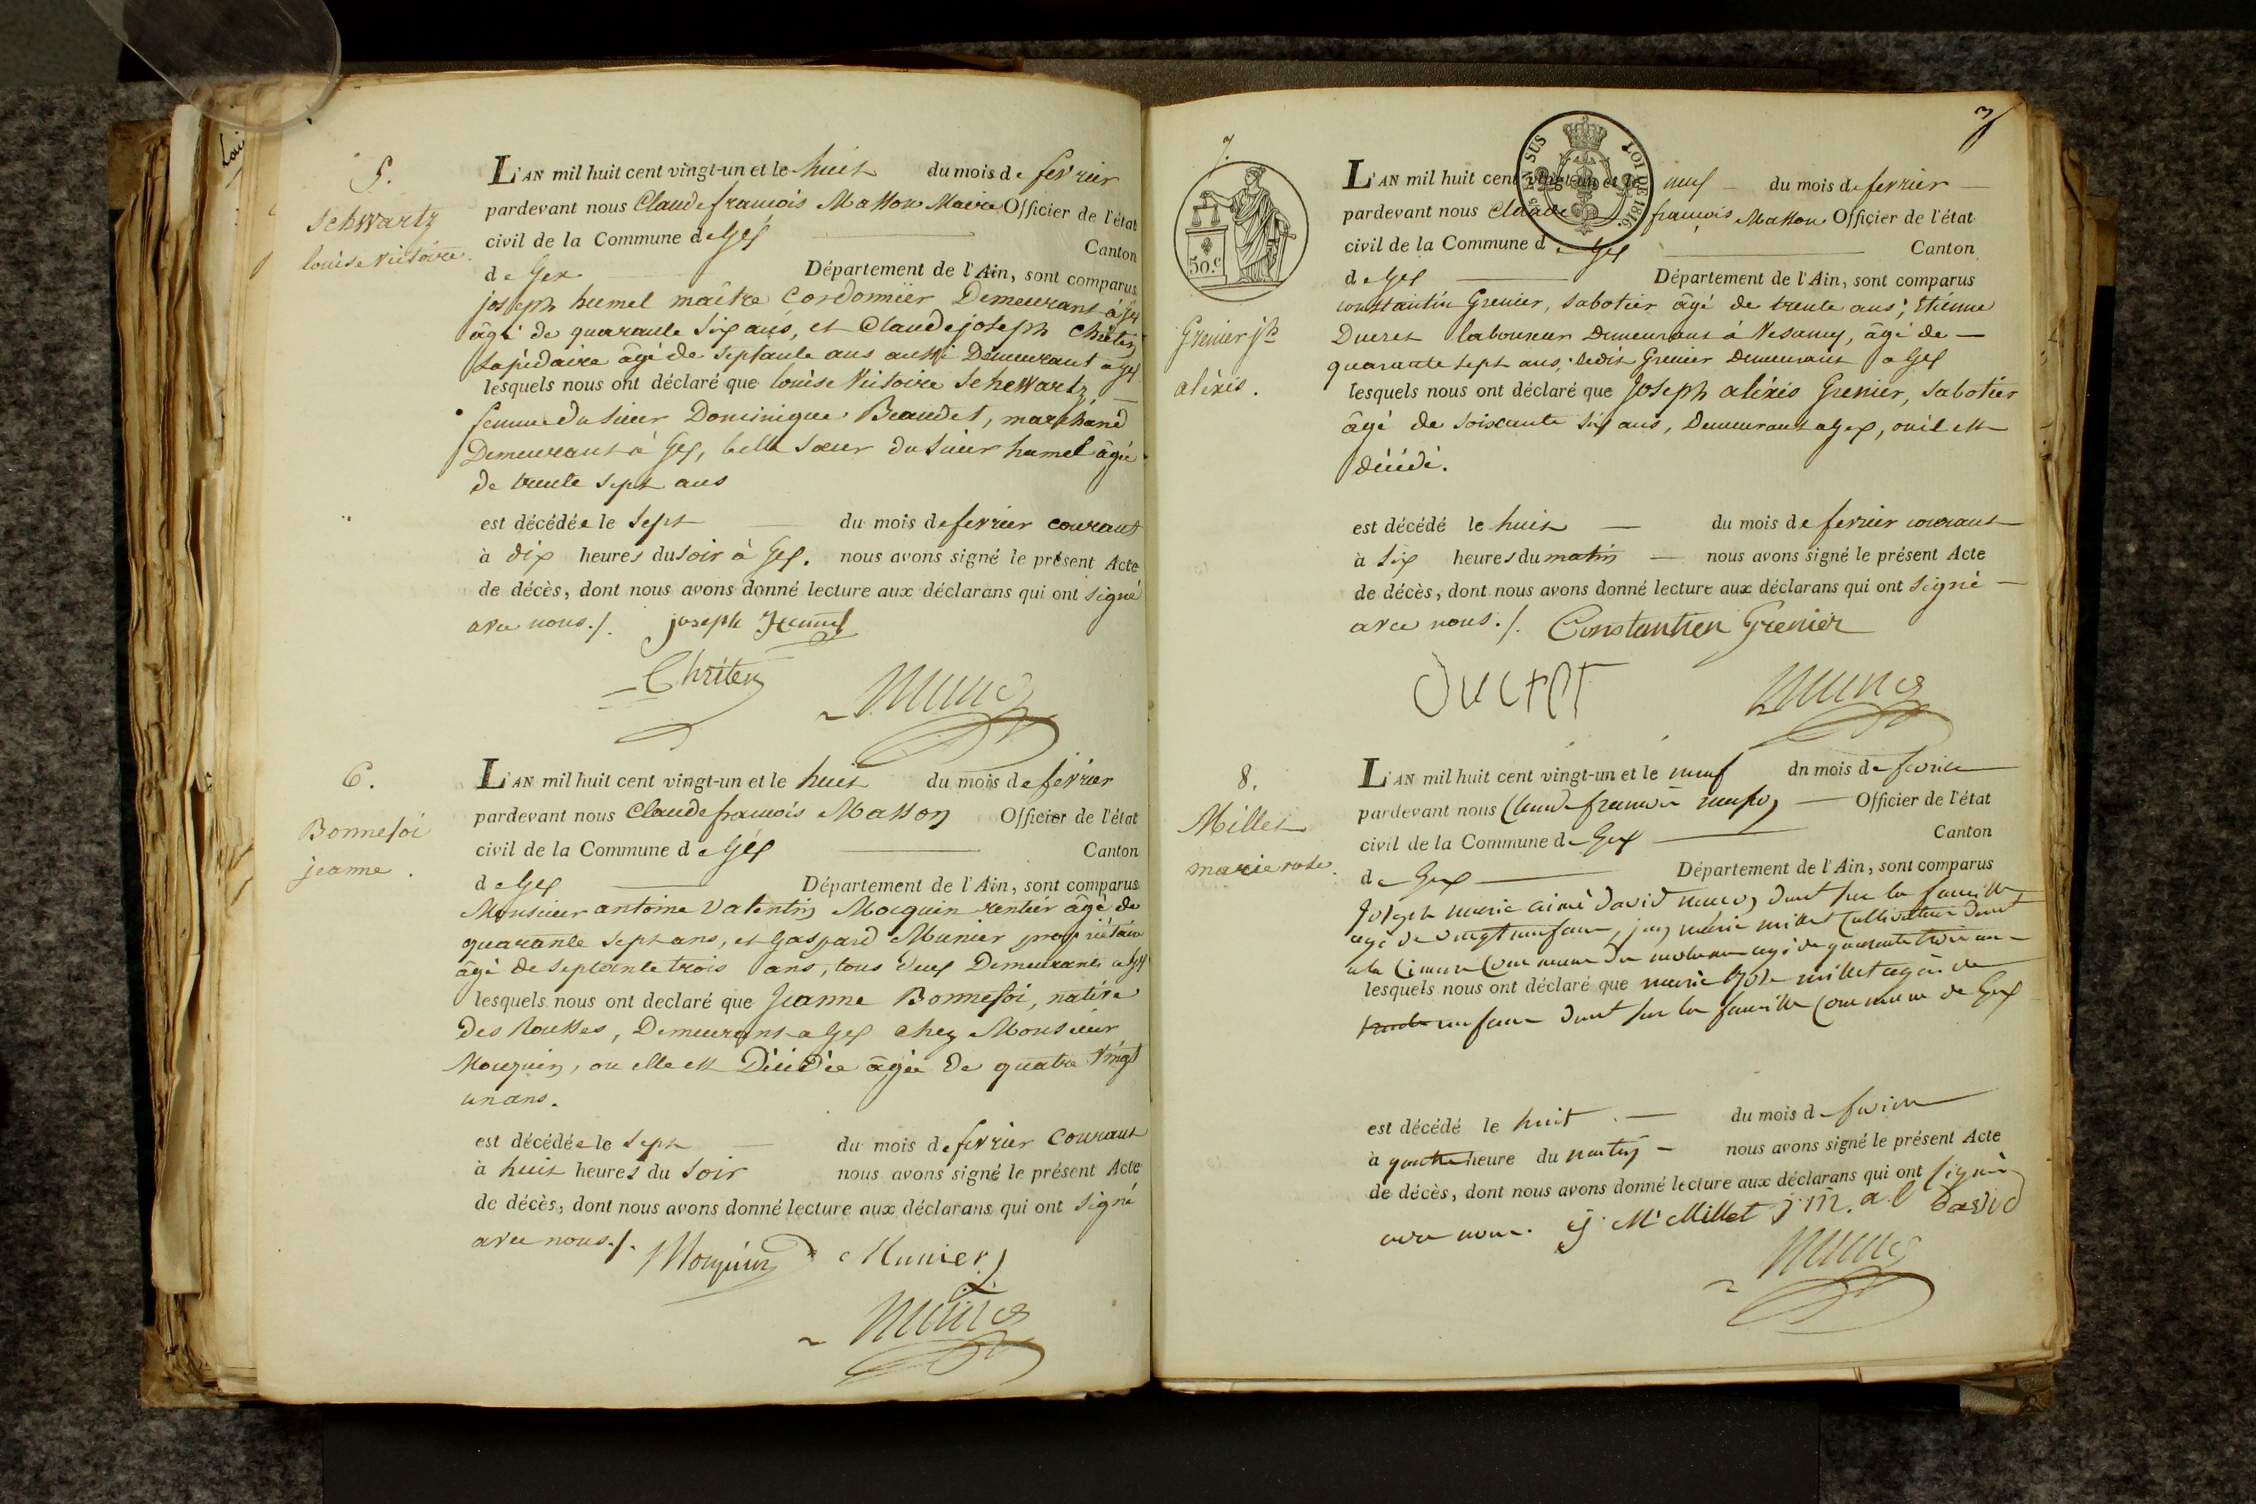 5.
Schwartz
louise Victoire.
L'AN mil huit cent vingt-un et le huit du mois de fevrier
pardevant nous Claude francois Masson Maire Officier de l'état
civil de la Commune de Gex
Canton
de Gex Département de l'Ain, sont comparus
joseph humel maître Cordonnier Demeurant à Gex
âgé de quarante six ans, et Claude joseph Chrêten
Lapidaire âgé de septante ans aussi Demeurant a Gex
lesquels nous ont déclaré que louise Victoire Schewartz
femme du sieur Dominique Beaudet, marchand
Demeurant à Gex, belle sœur du sieur humel âgée
de trente sept ans
est décédée le sept du mois de fevrier courant
à dix heures du soir à Gex. nous avons signé le présent Acte
de décès, dont nous avons donné lecture aux déclarans qui ont signé
avec nous./. joseph Humel
Chrîten
6.
Bonnefoi
jeanne.
L'AN mil huit cent vingt-un et le huit du mois de fevrier
pardevant nous Claude francois Masson Officier de l'état
civil de la Commune de Gex
Canton
de Gex Département de l'Ain, sont comparus
Monsieur antoine Valentin Moquin rentier âgé de
quarante sept ans, et Gaspard Munier proprietaire
âgé de septante trois ans, tous deux Demeurants a Gex
lesquels nous ont declaré que Jeanne Bonnefoi, native
des Rousses, Demeurant a Gex chez Monsieur
Mouquin, ou elle est Décédée âgée de quatre vingt
un ans.
est décédée le sept du mois de fevrier courant
à huit heures du soir nous avons signé le présent Acte
de décès, dont nous avons donné lecture aux déclarans qui ont signé
avec nous./. Moquin Munier
3
7.
EN SUS LOI DE 1816.
50.c
Grenier jh
aléxis.
L'AN mil huit cent vingt-un et le neuf du mois de fevrier
pardevant nous Claude françois Masson Officier de l'état
civil de la Commune de Gex Canton
de Gex Département de l'Ain, sont comparus
constantin Grenier, sabotier âgé de trente ans; Etienne
Ducret laboureur demeurant à Vesancy, âgé de
quarante sept ans; ledit Grenier demeurant a Gex
lesquels nous ont déclaré que Joseph aléxis Grenier, sabotier
âgé de soixante six ans, Demeurant a Gex, ou il est
décédé.
est décédé le huit du mois de fevrier courant
à six heures du matin nous avons signé le présent Acte
de décès, dont nous avons donné lecture aux déclarans qui ont signé
avec nous./. Constantien Grenier
Ducret
8.
Millet
marie rose.
L'AN mil huit cent vingt-un et le neuf dn mois de fevrier
pardevant nous Claude francois masson Officier de l'état
civil de la Commune de Gex Canton
de Gex Département de l'Ain, sont comparus
Joseph marie aimé David sur la faucille
agé de vingt neuf ans, jean marie millet Cultivateur
a la Commune du agé de quarante trois ans
lesquels nous ont déclaré que marie Rose millet agée de
neuf ans sur la faucille Commune de Gex
est décédé le huit du mois de fevrier
à quatre heure du matin nous avons signé le présent Acte
de décès, dont nous avons donné lecture aux déclarans qui ont signé
avec nous. J. M. Millet j. m. a. David